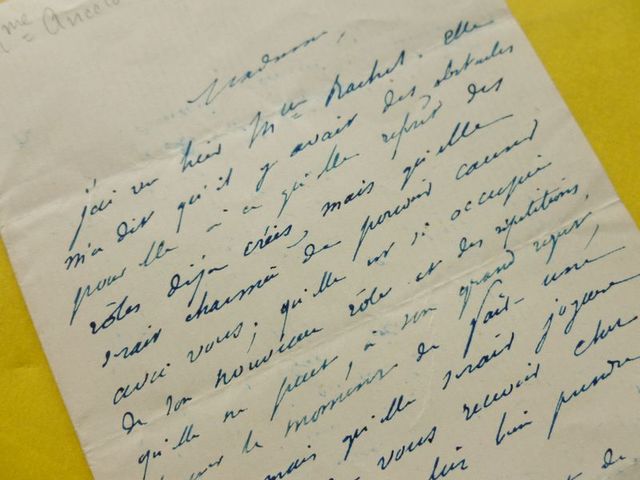 Mme Ancelot
Madame,
j'ai vu hier Mlle Rachel. Elle
m'a dit qu'il y avait des obstacles
pour elle à ce qu'elle reprit des
rôles déjà créés, mais qu'elle
serait charmée de pouvoir causer
avec vous; qu'elle est si occupée
de son nouveau rôle et des répétitions,
qu'elle ne peut, à son grand regret,
pour le moment de fait une
mais qu'elle serait joyeuse
vous recevoir chez
bien prendre
de